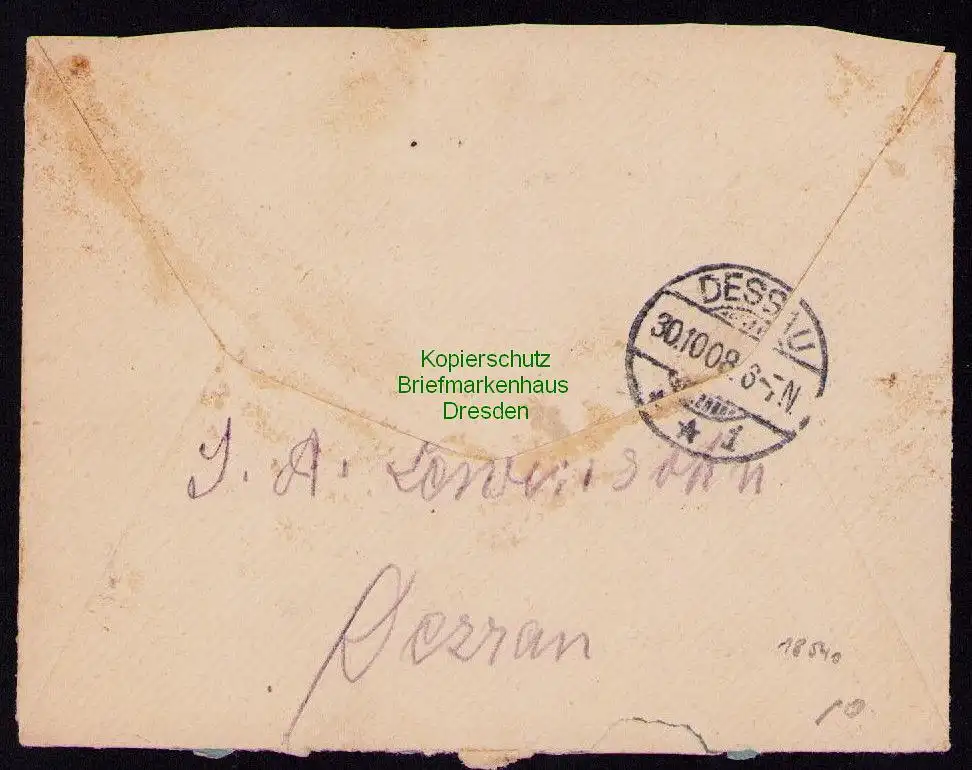 DESSAU
30.10.08. 6-7 N.
* 1
Kopierschutz
Briefmarkenhaus
Dresden
J. A.
Dessau
18540
10